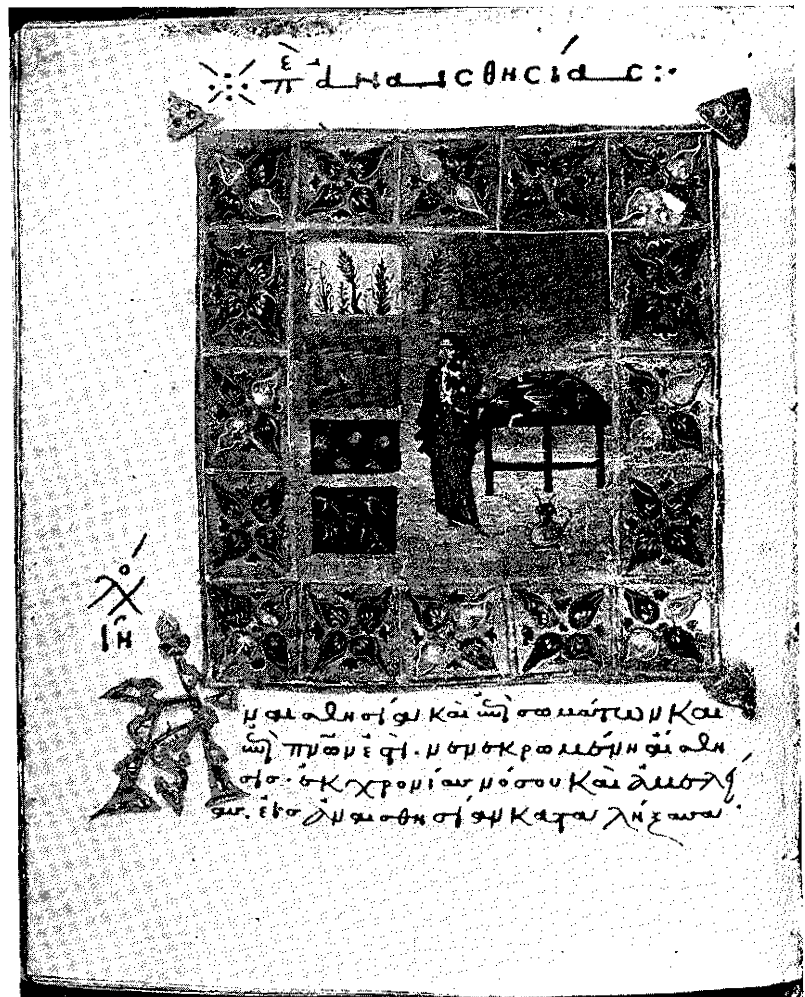 πε ἀναισθησίας :·
ιη
Ἀναισθησία καὶ ἐπὶ σωμάτων καὶ
ἐπὶ πνων ἐστι· νενεκρωμένη αἴσθη
σις· ἐκ χρονίας νόσου καὶ ἀμελεί
ας· εἰς ἀναισθησίαν καταλήξασα·